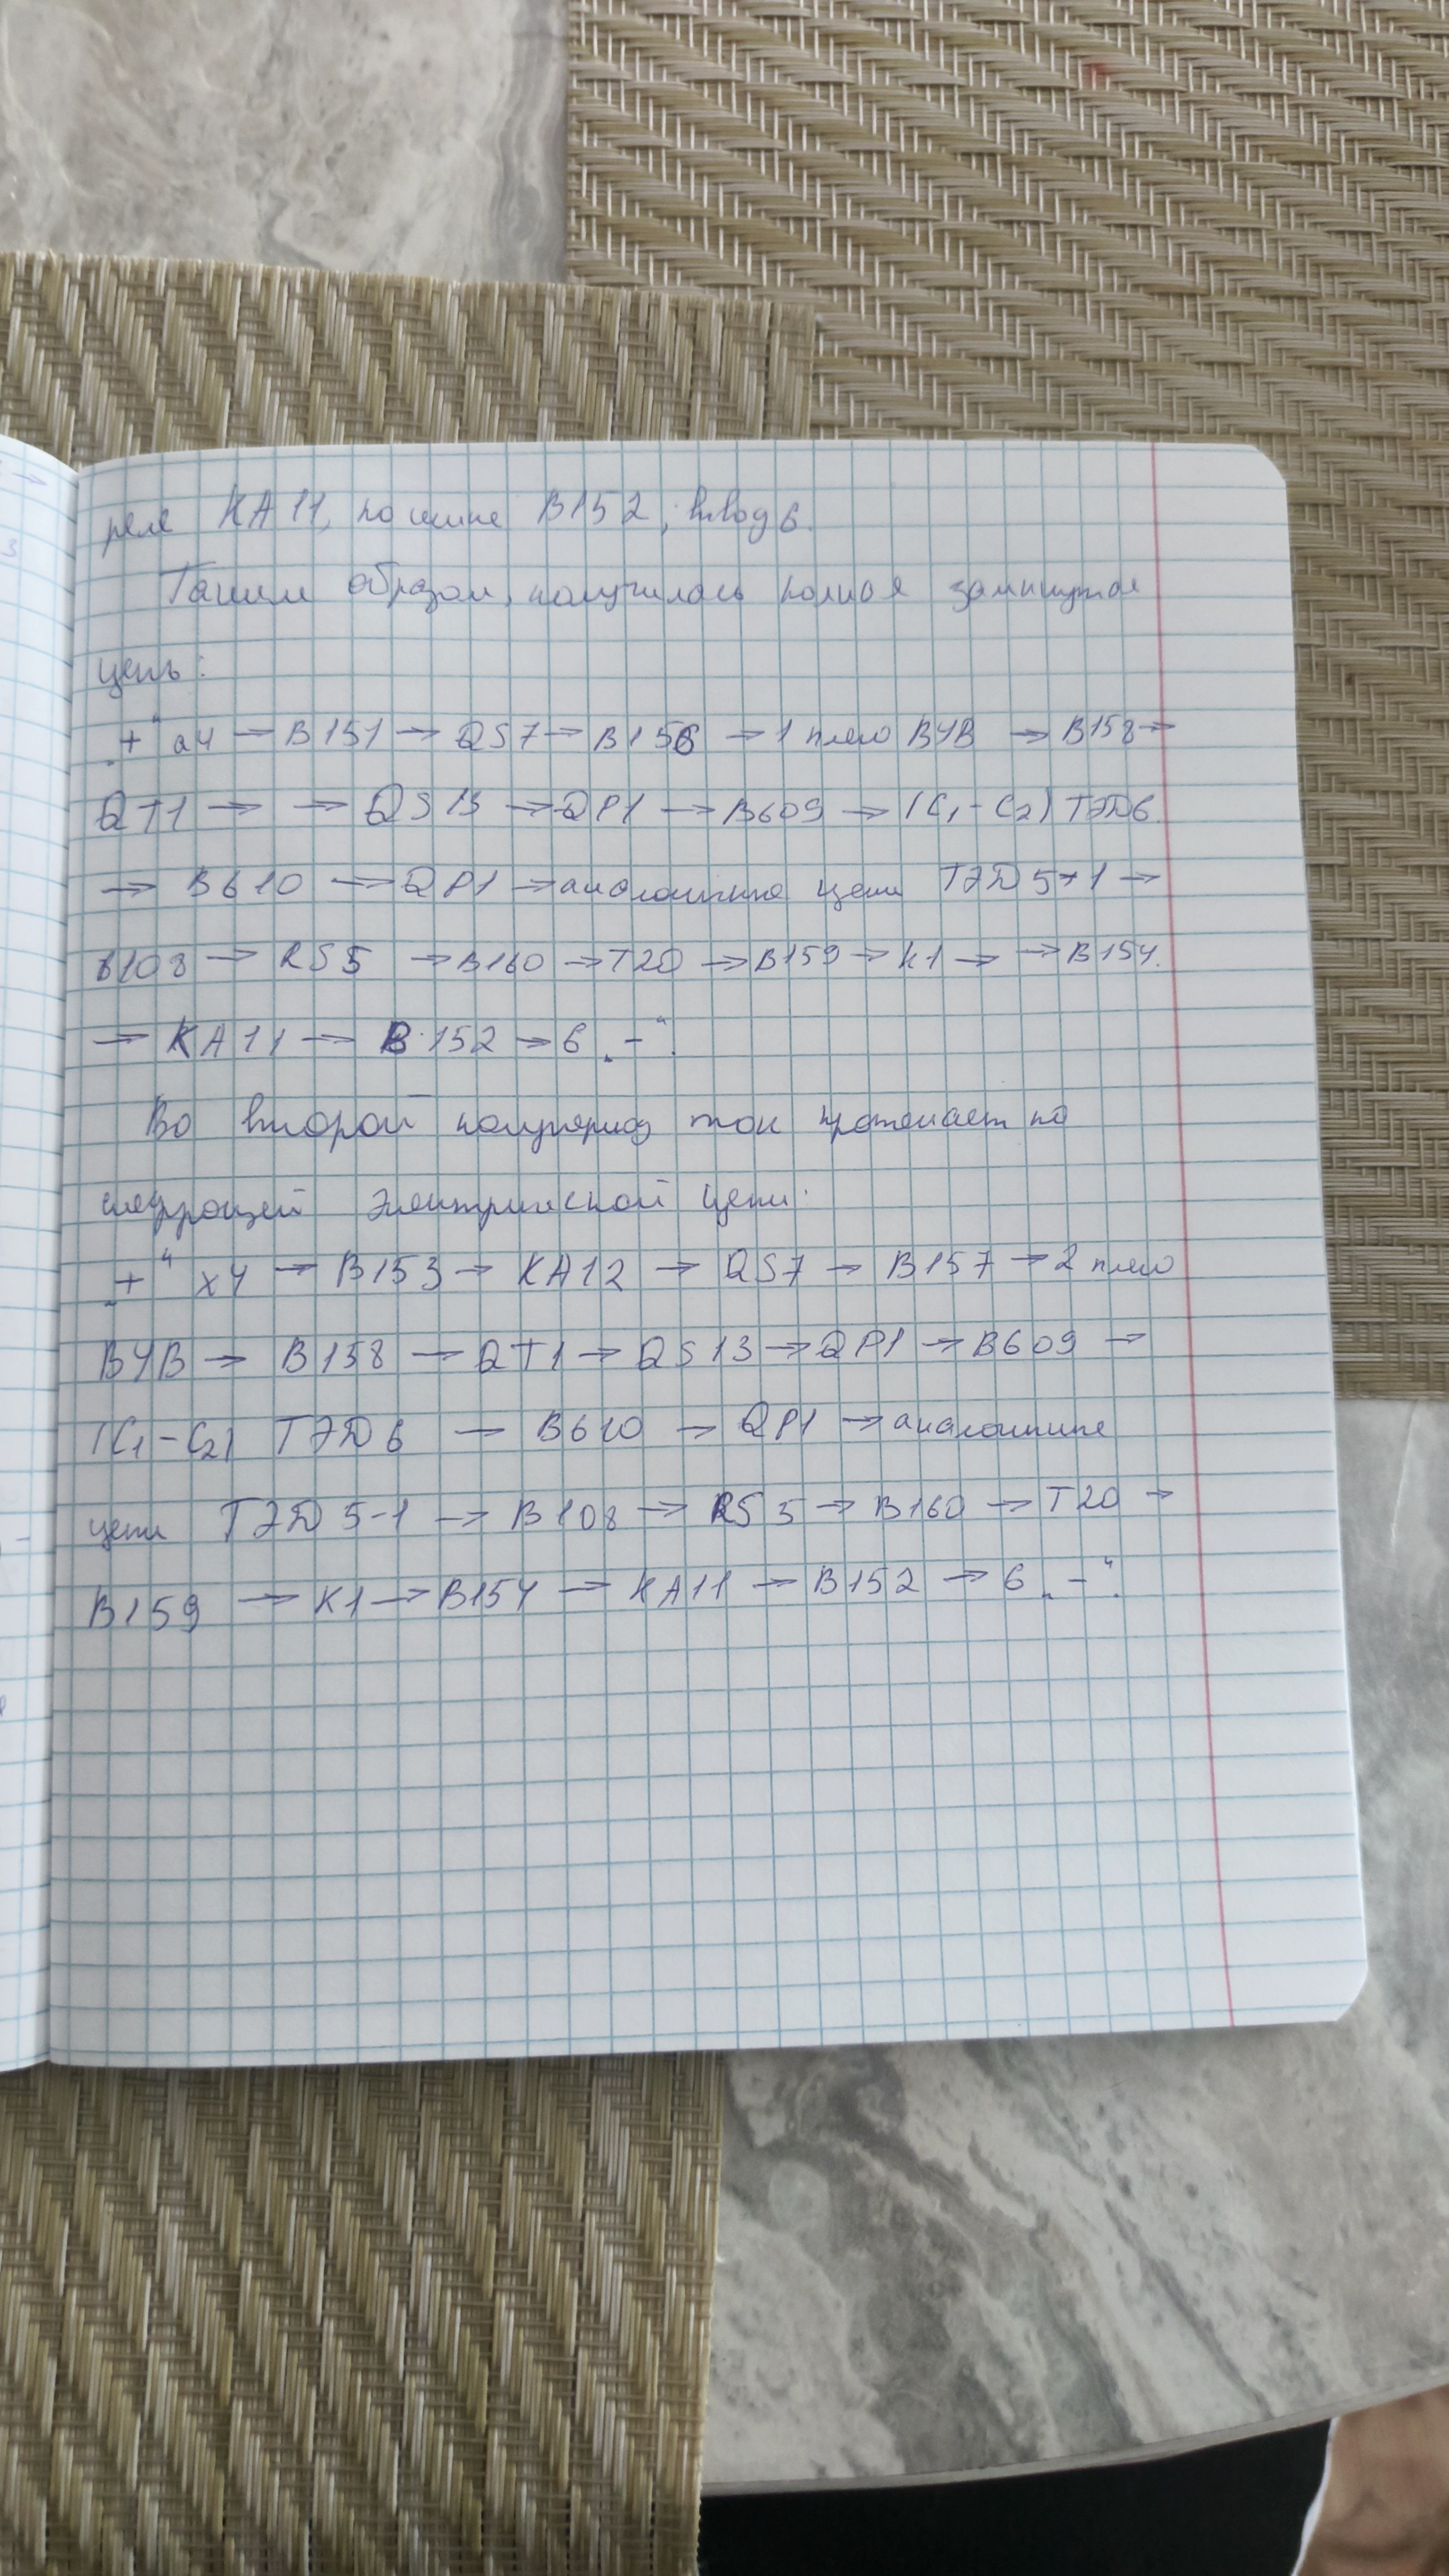 реле КА11, по шине В152, ввод 6.
Таким образом, получилась полная замкнутая
цепь:
„+“ а4 → В151 → QS7 → В156 → 1 плечо ВУВ → В158 →
QT1 → → QS13 → QP1 → В609 → (С1 - С2) ТЭД6
→ В610 → QP1 → аналогично цепи ТЭД 5-1 →
В108 → RS5 → В160 → Т20 → В159 → К1 → → В154.
→ КА11 → В152 → 6 „-“.
Во второй полупериод ток протекает по
следующей электрической цепи:
„+“ х4 → В153 → КА12 → QS7 → В157 → 2 плечо
ВУВ → В158 → QT1 → QS13 → QP1 → В609 →
(С1 - С2) ТЭД6 → В610 → QP1 → аналогично
цепи ТЭД 5-1 → В108 → RS5 → В160 → Т20 →
В159 → К1 → В154 → КА11 → В152 → 6 „-“.